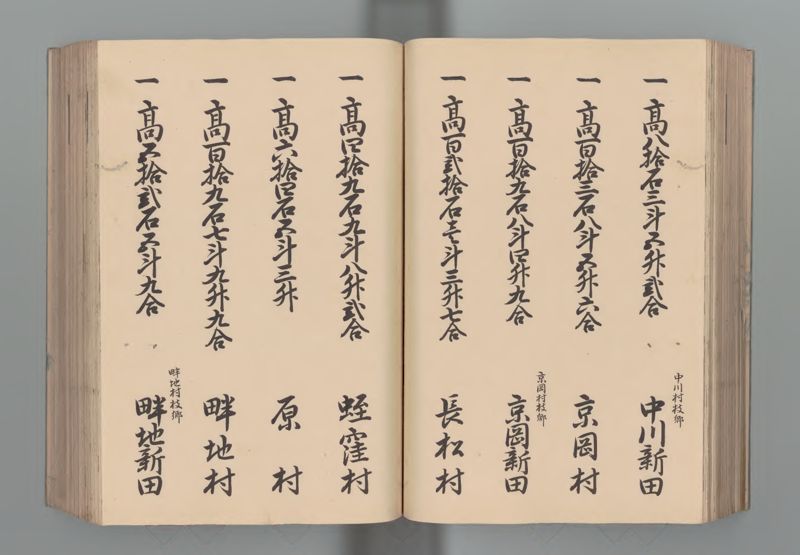 一 高八拾石三斗五升弐合
中川村枝郷
中川新田
一 高百拾三石八斗五升六合
京岡村
一 高百拾九石八斗四升九合
京岡村枝郷
京岡新田
一 高百弐拾石壱斗三升七合
長松村
一 高四拾九石九斗八升弐合
蛭窪村
一 高六拾四石五斗三升
原村
一 高百拾九石七斗九升九合
畔地村
一 高五拾弐石五斗九合
畔地村枝郷
畔地新田